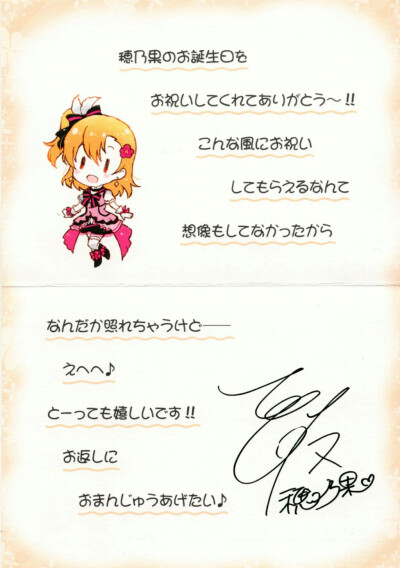 穂乃果のお誕生日を
お祝いしてくれてありがとう〜!!
こんな風にお祝い
してもらえるなんて
想像もしてなかったから
なんだか照れちゃうけど──
えへへ♪
とーっても嬉しいです!!
お返しに
おまんじゅうあげたい♪
穂乃果♡